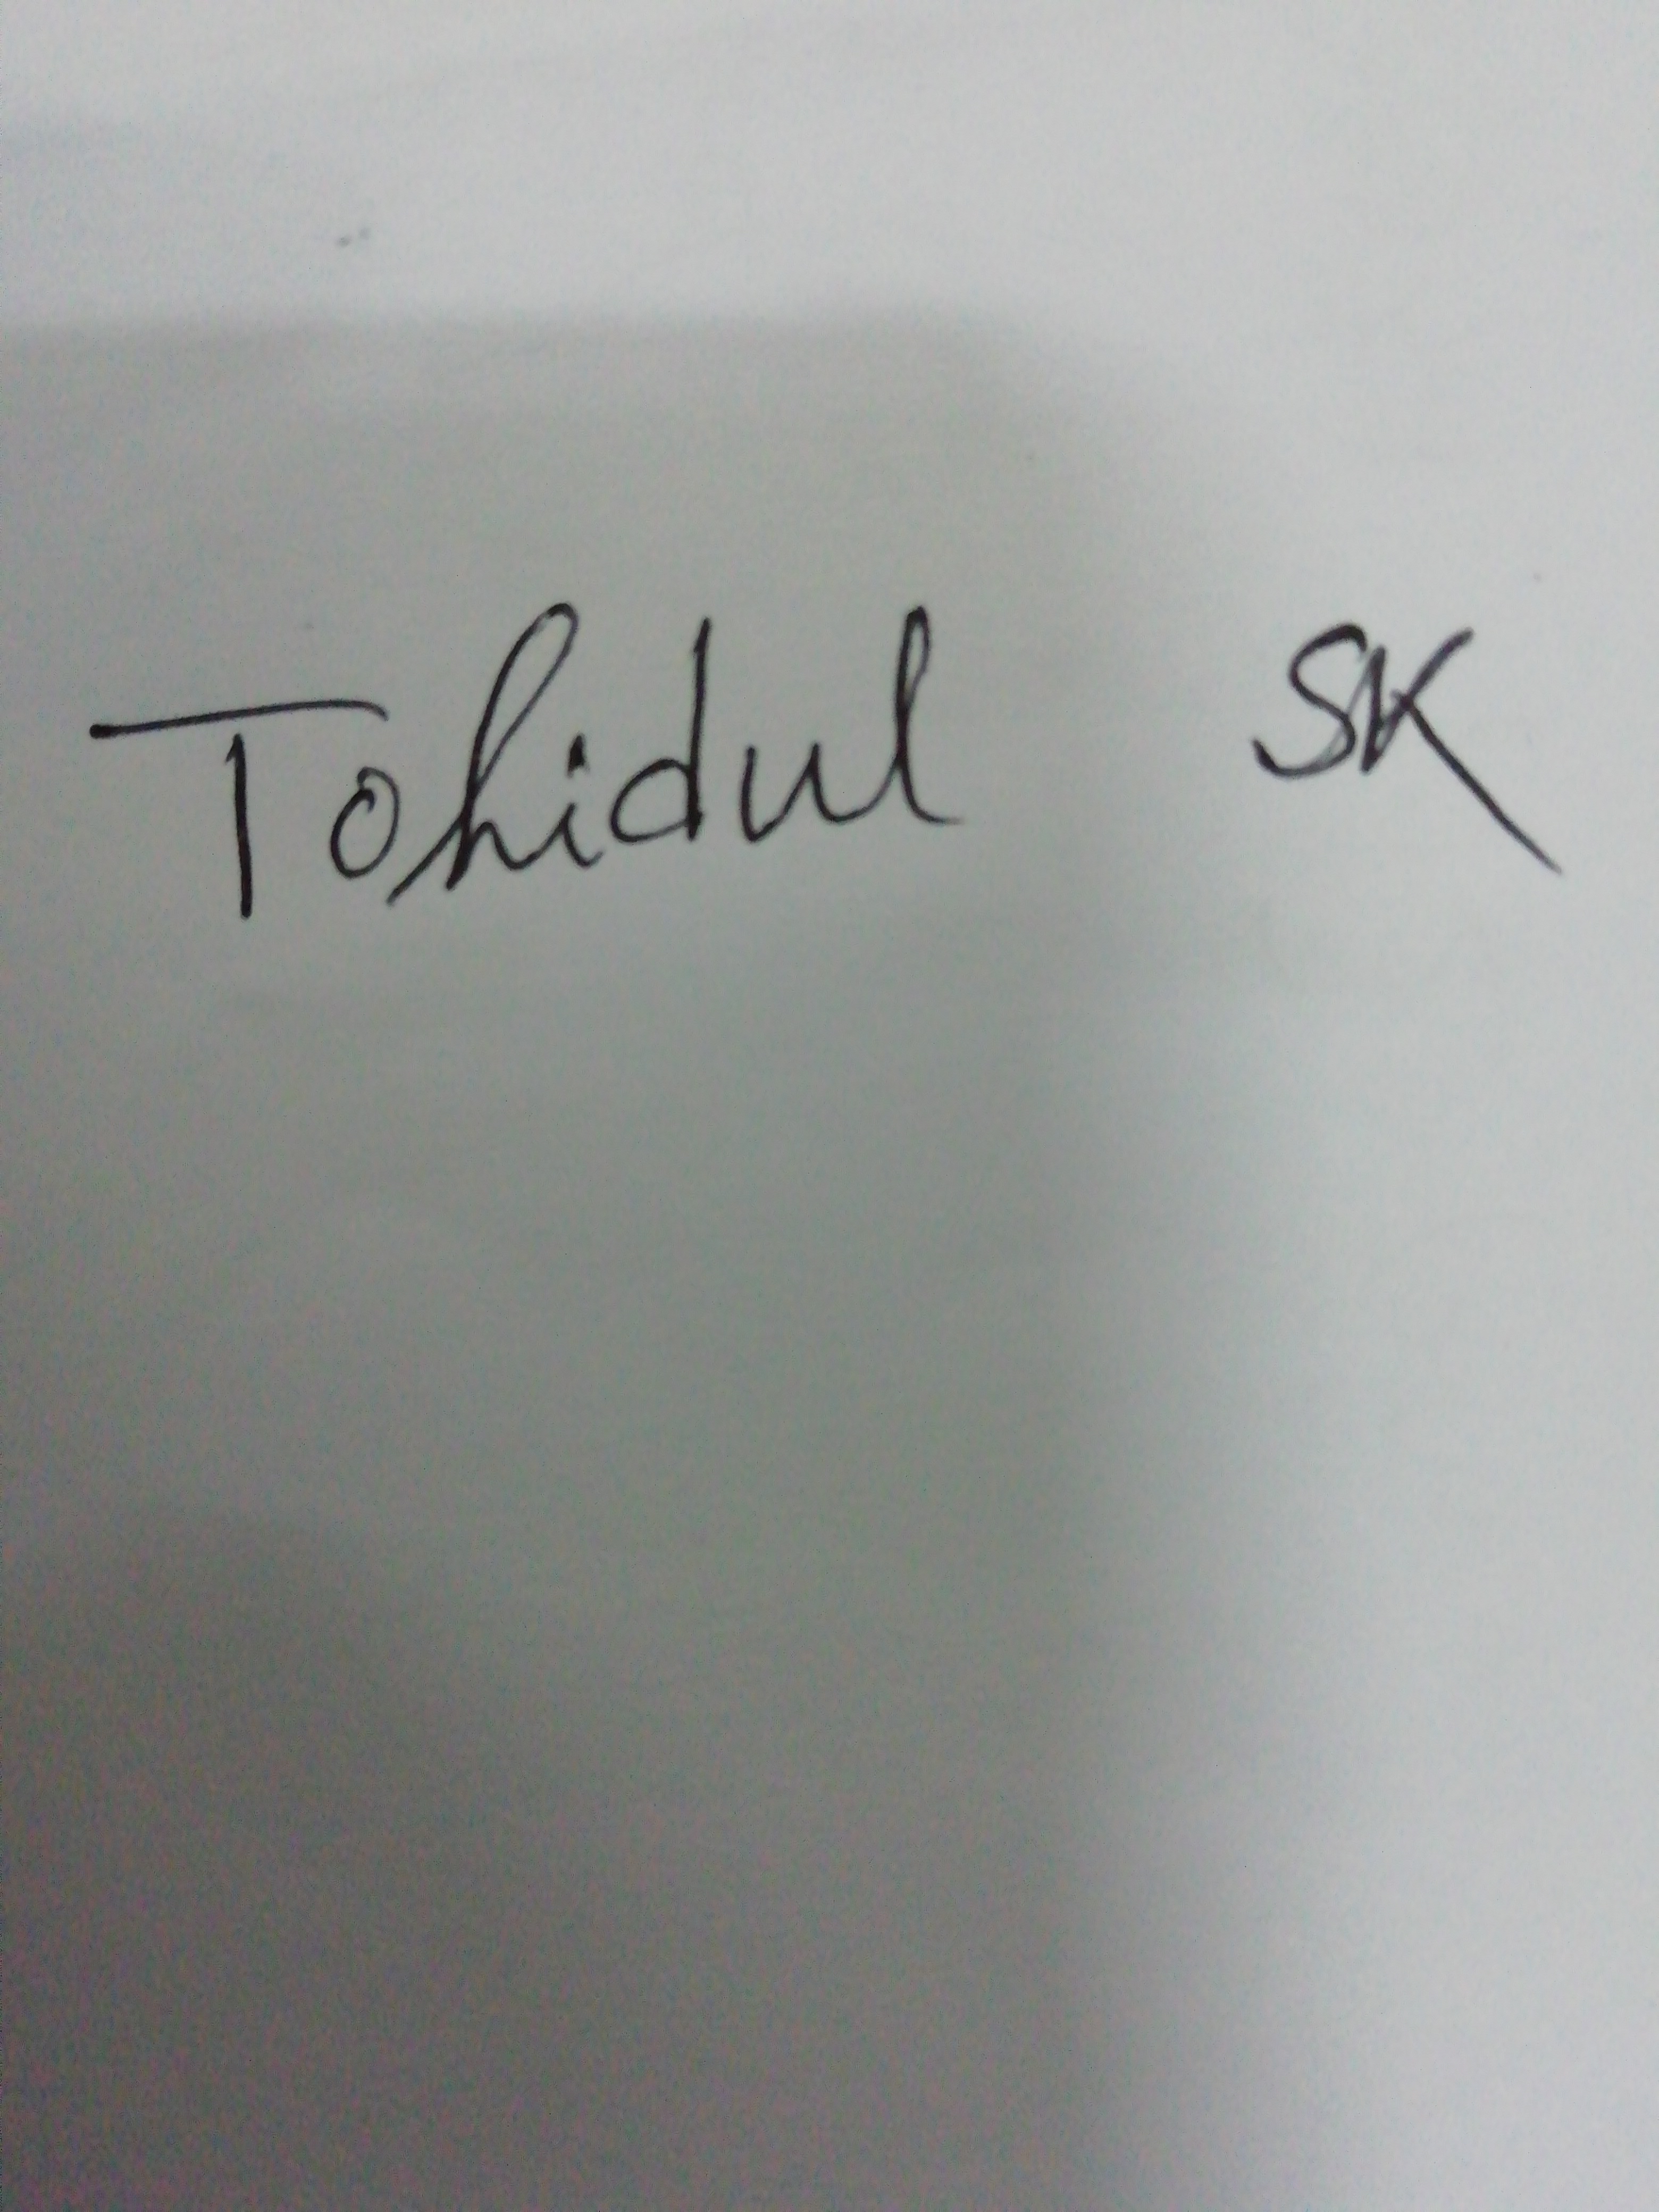 Tohidul SK